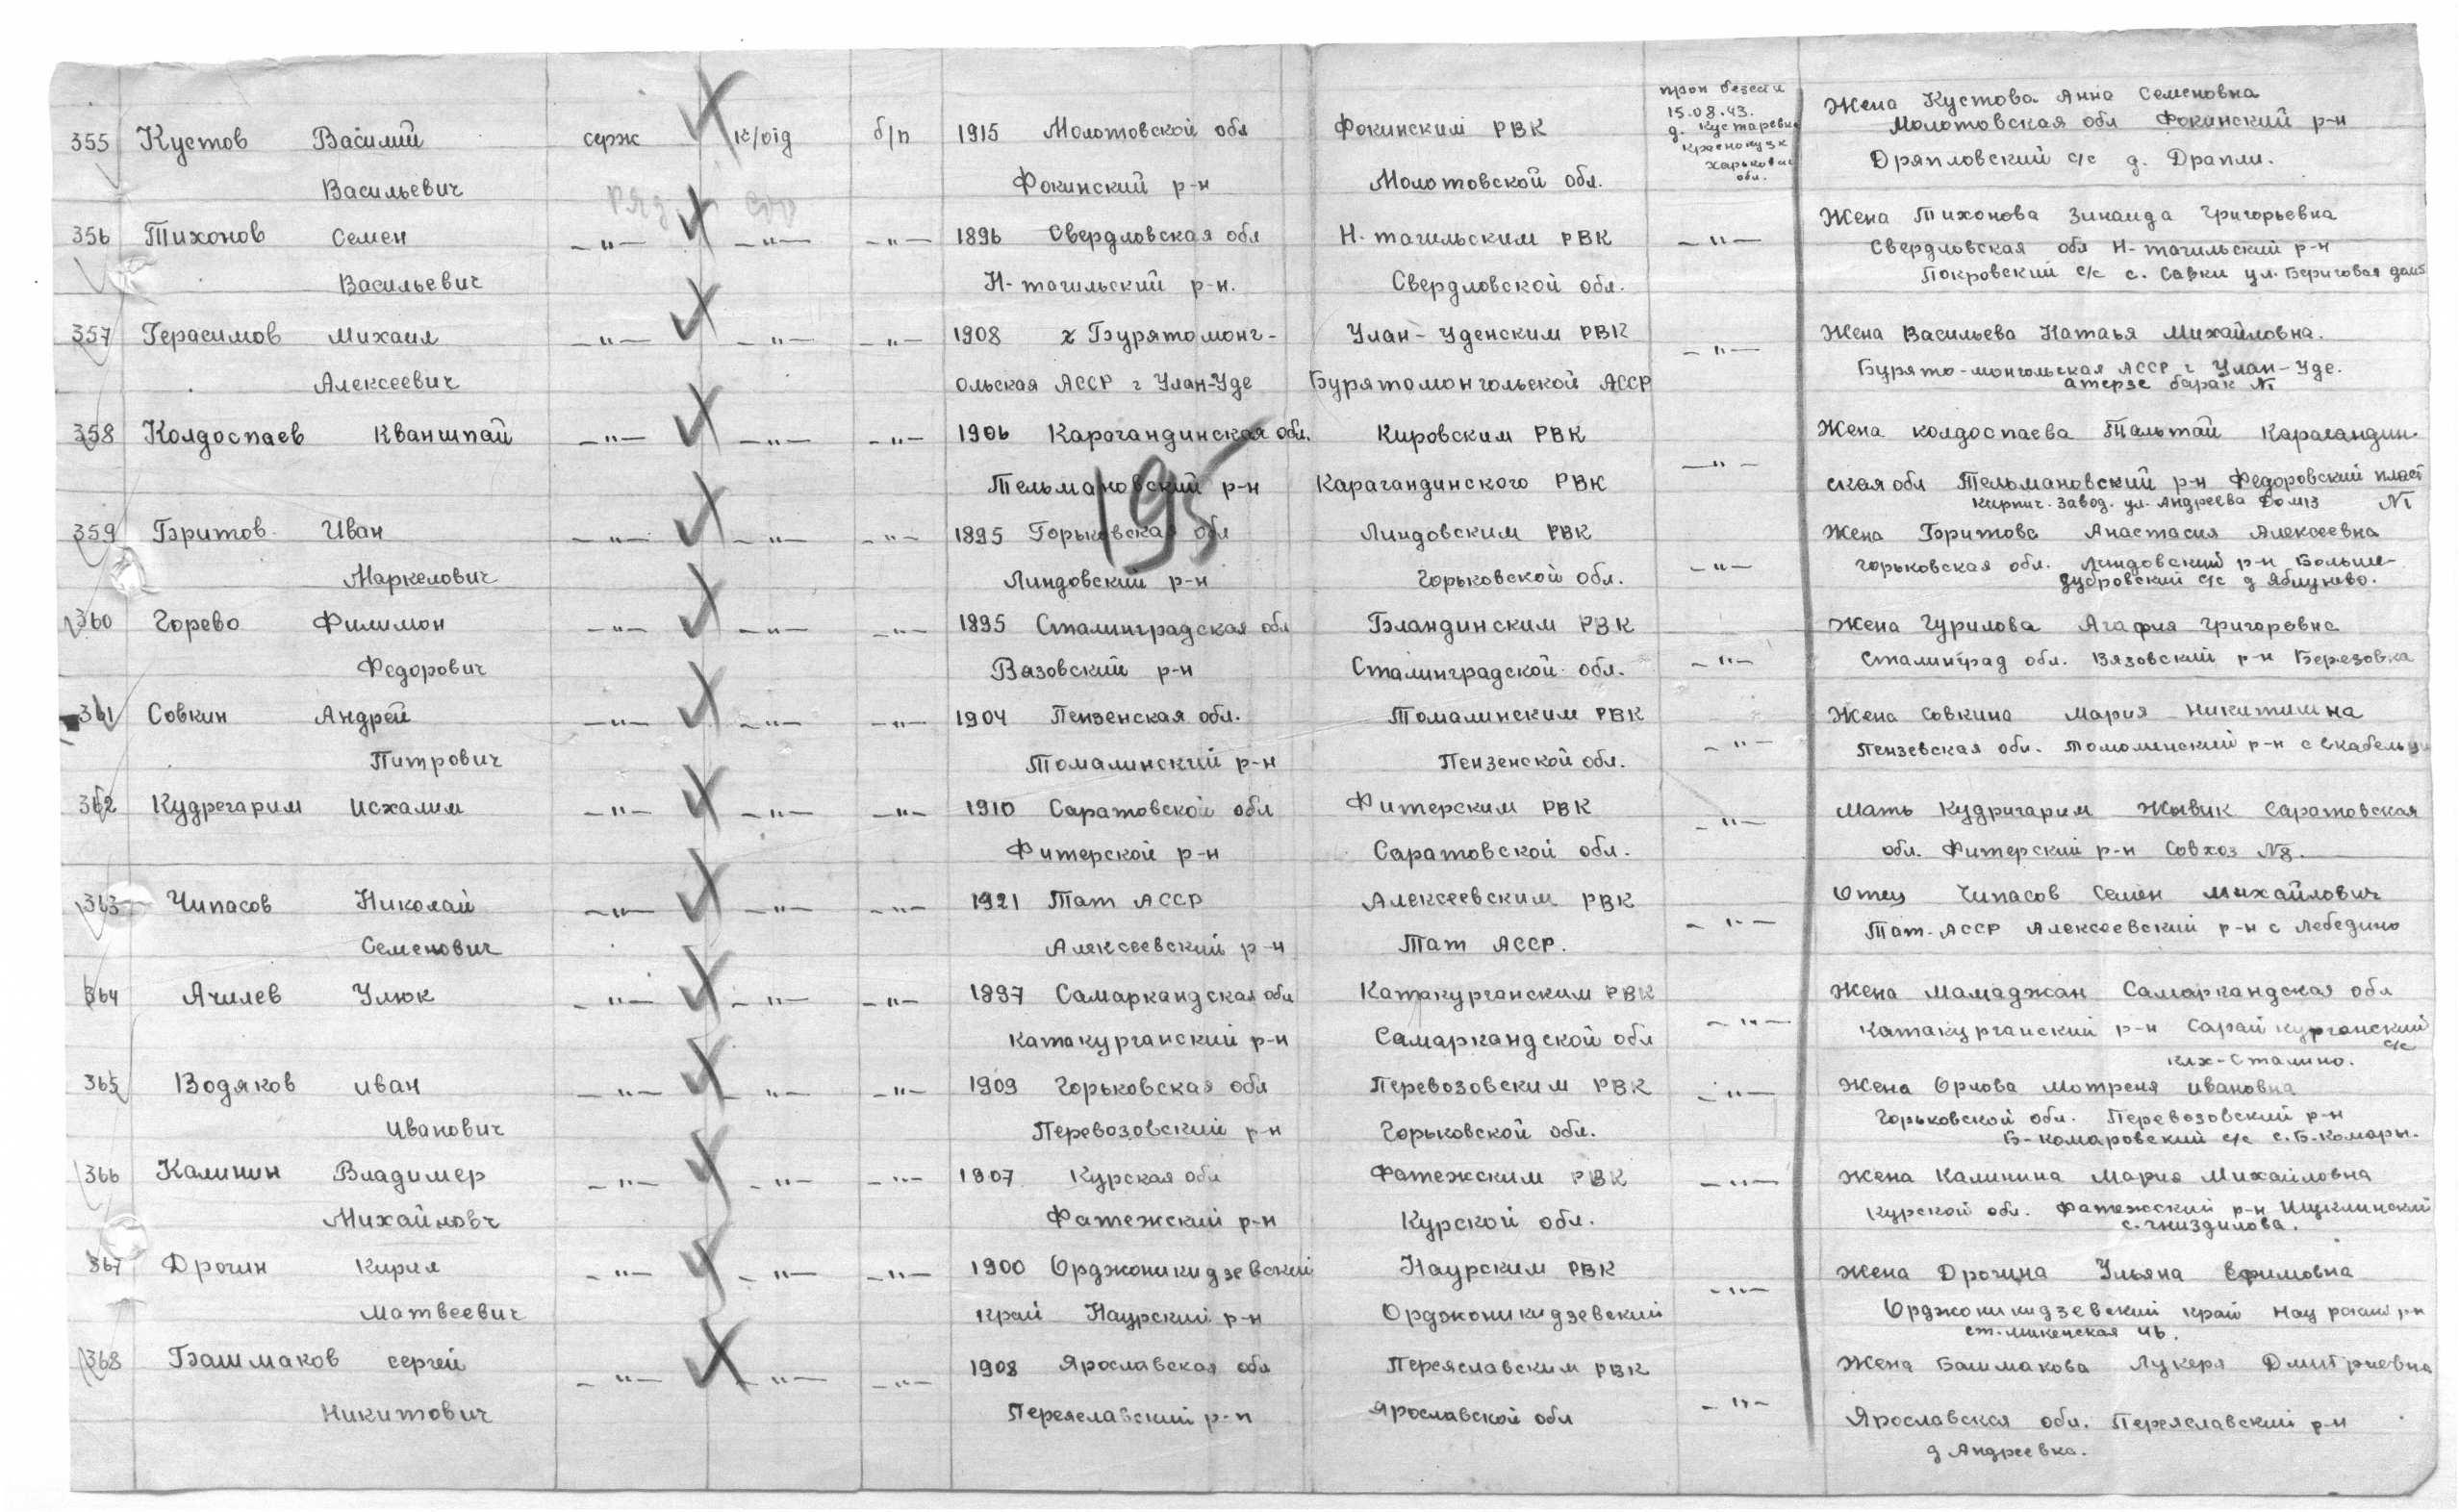 355 Кустов Василий серж к/отд б/п 1915 Молотовской обл Фокинским РВК проп безести 15.08.43. д. Кустаревка Краснокузк Харьковск обл. Жена Кустова Анна Семеновна
Молотовская обл Фокинский р-н
Васильевич Фокинский р-н Молотовской обл. Дряпловский с/с д. Драпли.
ряд
356 Тихонов Семен —"— —"— —"— 1896 Свердловская обл Н-тагильским РВК —"— Жена Тихонова Зинаида Григорьевна
Свердловская обл Н-тагильский р-н
Васильевич Н-тагильский р-н. Свердловской обл. Покровский с/с с. Савки ул. Береговая дом5
357 Герасимов Михаил —"— —"— —"— 1908 г Бурятомонг- Улан-Уденским РВК —"— Жена Васильева Наталья Михайловна.
Алексеевич ольская АССР г Улан-Уде Бурятомонгольской АССР Бурято-монгольская АССР г Улан-Уде.
барак №
358 Колдоспаев Кваншпай —"— —"— —"— 1906 Карагандинская обл. Кировским РВК —"— Жена Колдоспаева Тальтай Карагандин-
Тельмановский р-н Карагандинского РВК ская обл Тельмановский р-н Федоровский пласт
195
Кирпич. завод. ул. Андреева Дом13 №
359 Бритов Иван —"— —"— —"— 1895 Горьковская обл Линдовским РВК —"— Жена Бритова Анастасия Алексеевна
Маркелович Линдовский р-н Горьковской обл. Горьковская обл. Линдовский р-н Больше-
дубровский с/с д Яблуново.
360 Горево Филимон —"— —"— —"— 1895 Сталинградская обл Бландинским РВК —"— Жена Гурилова Агафия Григоревна
Федорович Вязовский р-н Сталинградской обл. Сталинград обл. Вязовский р-н Березовка
361 Совкин Андрей —"— —"— —"— 1904 Пензенская обл. Томалинским РВК —"— Жена Совкина Мария Никитимна
Питрович Томалинский р-н Пензенской обл. Пензевская обл. Томолинский р-н с
362 Кудрегарим Исхалим —"— —"— —"— 1910 Саратовской обл Фитерским РВК —"— Мать Кудригарим Жывик Саратовская
Фитерской р-н Саратовской обл. обл. Фитерский р-н Совхоз №8.
363 Чипасов Николай —"— —"— —"— 1921 Тат АССР Алексеевским РВК —"— Отец Чипасов Семен Михайлович
Семенович Алексеевский р-н Тат АССР. Тат. АССР Алексеевский р-н с Лебедино
364 Ячилев Улюк —"— —"— —"— 1897 Самаркандская обл Катакурганским РВК —"— Жена Мамаджан Самаркандская обл
Катакурганский р-н Самаркандской обл Катакурганский р-н Сарай курганский с/с
клх-Сталино.
365 Водяков Иван —"— —"— —"— 1909 Горьковская обл Перевозовским РВК —"— Жена Орлова Мотреня Ивановна
Иванович Перевозовский р-н Горьковской обл. Горьковской обл. Перевозовский р-н
Б-комаровский с/с с.Б-Комары.
366 Калинин Владимер —"— —"— —"— 1907 Курская обл Фатежским РВК —"— Жена Калинина Мария Михайловна
Михайловч Фатежский р-н Курской обл. Курской обл. Фатежский р-н Щуклинский
с. Гниздилова.
367 Дрогин Кирил —"— —"— —"— 1900 Орджоникидзевский Наурским РВК —"— Жена Дрогина Ульяна Ефимовна
Матвеевич край Наурский р-н Орджоникидзевский Орджоникидзевский край Наурский р-н
ст. Микенская
368 Башмаков Сергей —"— —"— —"— 1908 Ярославская обл Переяславским РВК —"— Жена Башмакова Лукеря Дмитриевна
Никитович Переяславский р-н Ярославской обл Ярославская обл. Переяславский р-н
д Андреевка.